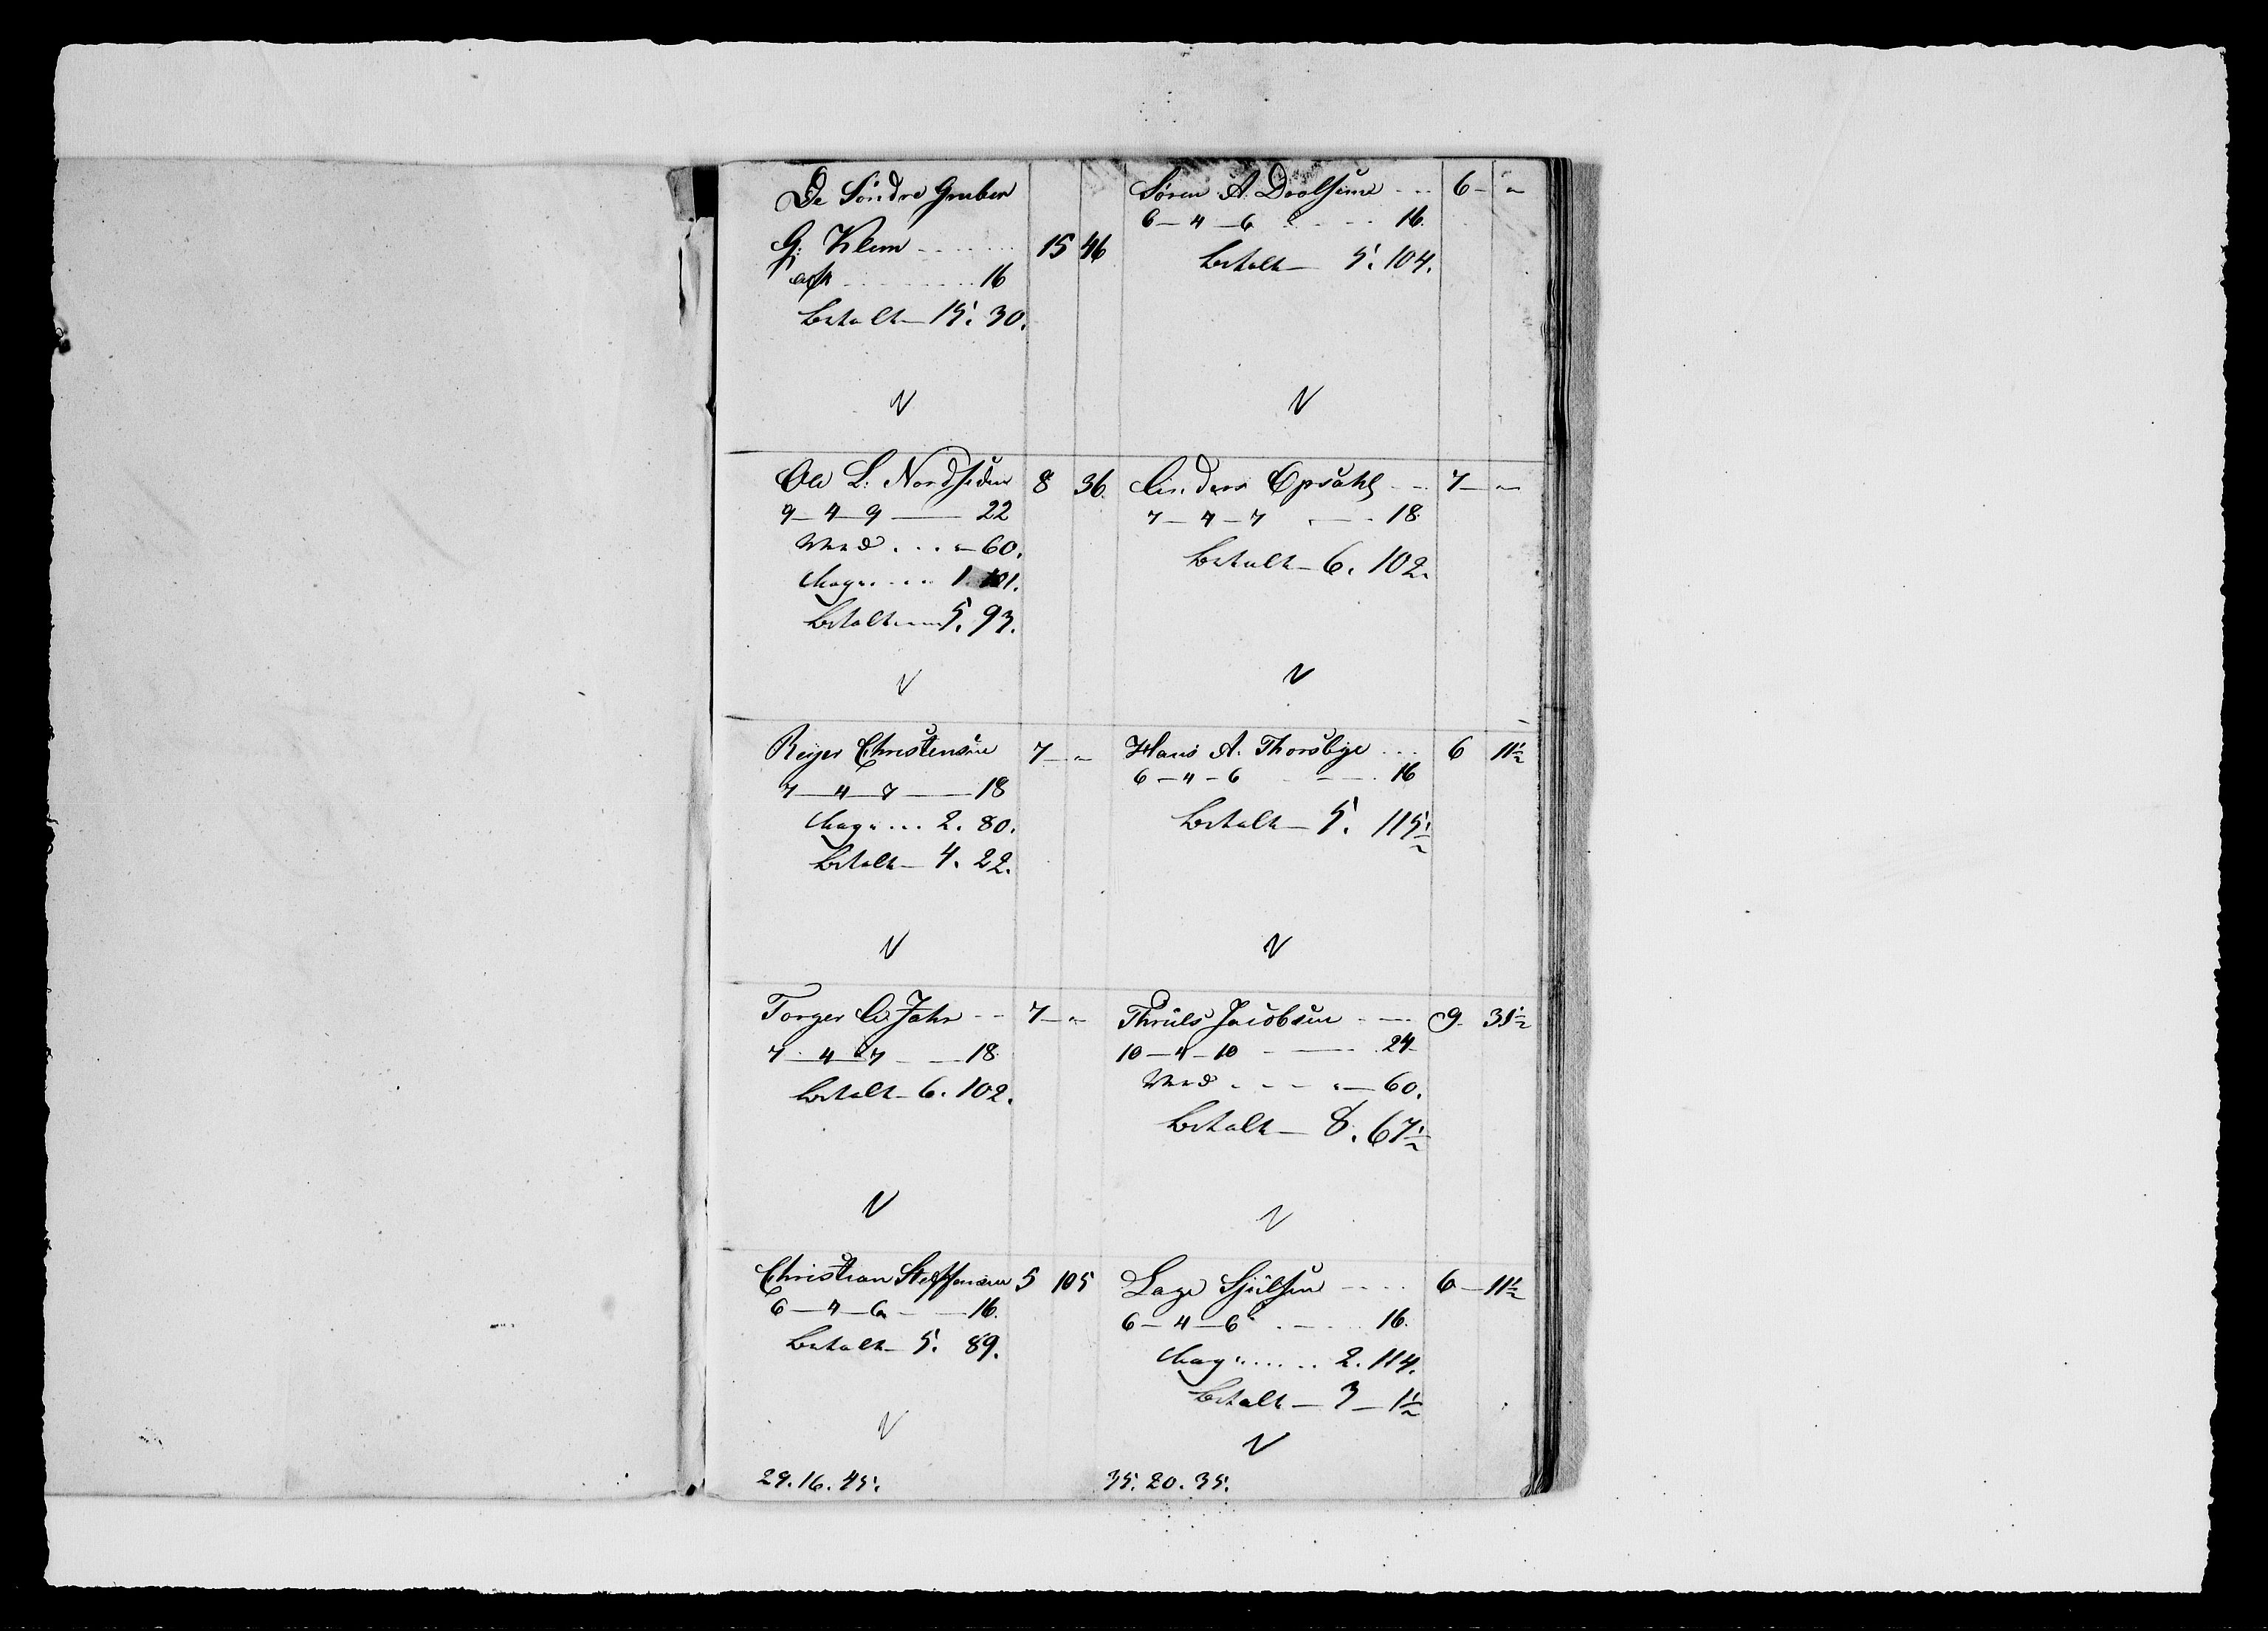 De Söndre Gruber
G: Klem ........ 15 46
afk ......... 16
betalt — 15. 30.
N
Ole L: Nordsiden 8 36.
9 — 4 — 9 —— 22
Med . . . " — 60.
Mag: .... 1. 101.
betalt — 5. 93.
N
Reyer Christensen 7 — "
7 — 4 — 7 —— 18
Mag: ... 2. 80.
betalt — 4. 22.
N
Torger C. Jahr -- 7 — "
7 — 4 — 7 —— 18.
betalt — 6. 102.
N
Christian Steffensen 5 105
6 — 4 — 6 —— 16.
betalt — 5. 89.
N
29. 16. 45.
Sören A. --- 6 — "
6 — 4 — 6 ---- 16.
betalt — 5. 104.
N
Anders Opsahl -- 7 — "
7 — 4 — 7 --- 18.
betalt — 6. 102.
N
Hans A. Thorsbye ... 6 11½
6 — 4 — 6 --- 16
betalt — 5. 115½
N
Thruls Jacobsen --- 9. 31½
10 — 4 — 10 —— 24
Med - - - " — 60.
betalt — 8. 67½
N
Lage --- 6 — 11½
6 — 4 — 6 --- 16.
Mag: ...... 2. 114.
betalt — 3 — 1½
N
35. 20. 35.